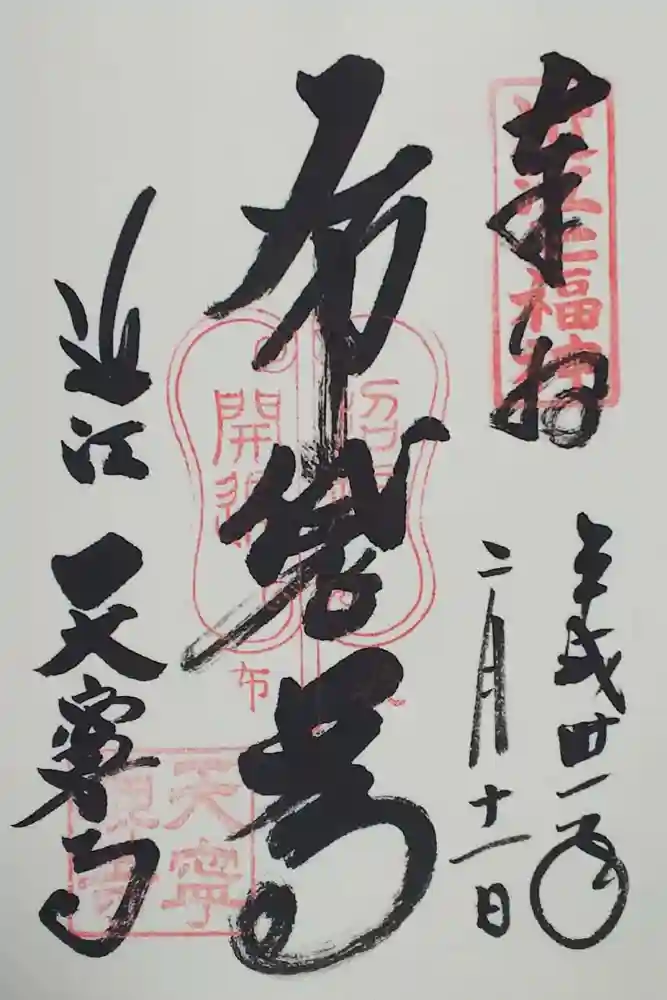 奉拝
平成卅一年
二月十一日
布袋尊
近江
天寧寺
近江七福神
招福
開運
布袋
天寧